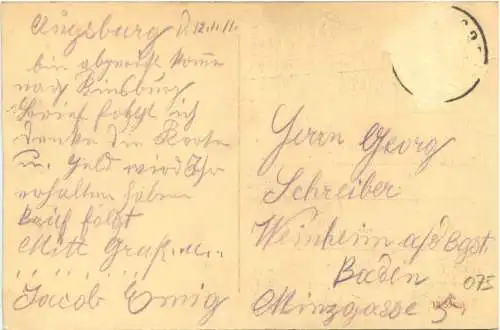 Augsburg d. 12.1.11.
bin abgereist komme
nach Kinsburg
Brief folgt ich
denke die Karte
u. Geld wird Ihr
erhalten haben
Brief folgt
Mitt Gruß
Jacob Emig
Herrn Georg
Schreiber
Weinheim a/d Bgst.
Baden
Minzgasse 5
075